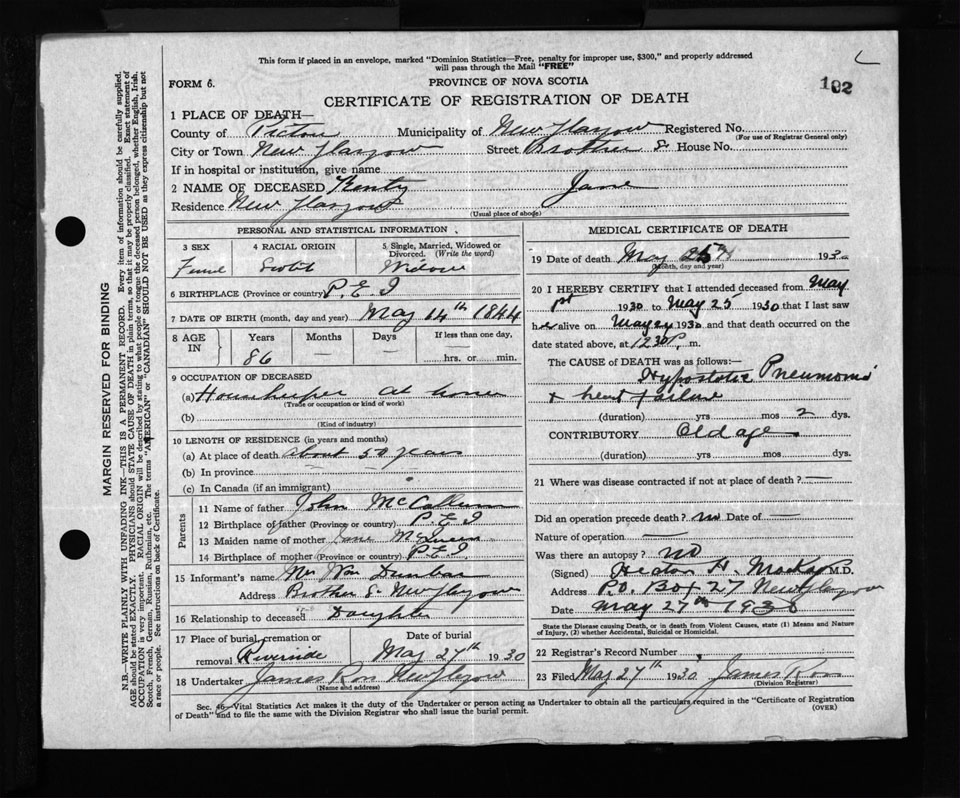 This form if placed in an envelope, marked "Dominion Statistics—Free, penalty for improper use, $300," and properly addressed
will pass through the Mail "FREE"
FORM 6.
PROVINCE OF NOVA SCOTIA
102
CERTIFICATE OF REGISTRATION OF DEATH
1 PLACE OF DEATH—
County of Pictou Municipality of New Glasgow Registered No.
(For use of Registrar General only)
City or Town New Glasgow Street Brother S House No.
If in hospital or institution, give name
2 NAME OF DECEASED Jane
Residence New Glasgow
(Usual place of abode)
PERSONAL AND STATISTICAL INFORMATION
3 SEX
4 RACIAL ORIGIN
5 Single, Married, Widowed or
Divorced. (Write the word)
Widow
6 BIRTHPLACE (Province or country) P.E.I
7 DATE OF BIRTH (month, day and year) May 14th 1844
8 AGE IN
Years Months Days If less than one day,
86 — — hrs. or min.
9 OCCUPATION OF DECEASED
(a) Housekeeper at home
(Trade or occupation or kind of work)
(b)
(Kind of industry)
10 LENGTH OF RESIDENCE (in years and months)
(a) At place of death about 50 years
(b) In province
(c) In Canada (if an immigrant)
Parents
11 Name of father John McCallum
12 Birthplace of father (Province or country) P.E.I
13 Maiden name of mother Jane McQueen
14 Birthplace of mother (Province or country) P.E.I
15 Informant's name Mrs Wm Dunbar
Address Brother S New Glasgow
16 Relationship to deceased Daughter
17 Place of burial, cremation or
removal Riverside
Date of burial
May 27th 1930
18 Undertaker James Ross New Glasgow
(Name and address)
MEDICAL CERTIFICATE OF DEATH
19 Date of death May 1930
(Month, day and year)
20 I HEREBY CERTIFY that I attended deceased from May
1930 to May 25 1930 that I last saw
her alive on May 24 1930 and that death occurred on the
date stated above, at 12 30 P. m.
The CAUSE of DEATH was as follows:—
Hypostatic Pneumonia
+ heart failure
(duration) yrs mos 2 dys.
CONTRIBUTORY Old age
(duration) yrs mos dys.
21 Where was disease contracted if not at place of death? —
Did an operation precede death? no Date of —
Nature of operation —
Was there an autopsy? no
(Signed) Hector H. MacKay M.D.
Address P.O. Box 27 New Glasgow
Date May 27th 1930
State the Disease causing Death, or in death from Violent Causes, state (1) Means and Nature
of Injury, (2) whether Accidental, Suicidal or Homicidal.
22 Registrar's Record Number
23 Filed May 27th 1930 James Ross
(Division Registrar)
Sec. 46—Vital Statistics Act makes it the duty of the Undertaker or person acting as Undertaker to obtain all the particulars required in the "Certificate of Registration
of Death" and to file the same with the Division Registrar who shall issue the burial permit.
(OVER)
MARGIN RESERVED FOR BINDING
N.B.—WRITE PLAINLY WITH UNFADING INK—THIS IS A PERMANENT RECORD. Every item of information should be carefully supplied.
AGE should be stated EXACTLY. PHYSICIANS should STATE CAUSE OF DEATH in plain terms, so that it may be properly classified. Exact statement of
OCCUPATION is very important. RACIAL ORIGIN will be described by stating to what people or tongue the deceased person belonged, whether English, Irish,
Scotch, French, German, Russian, Ruthenian, etc. The terms "AMERICAN" or "CANADIAN" SHOULD NOT BE USED as they express citizenship but not
a race or people. See instructions on back of Certificate.